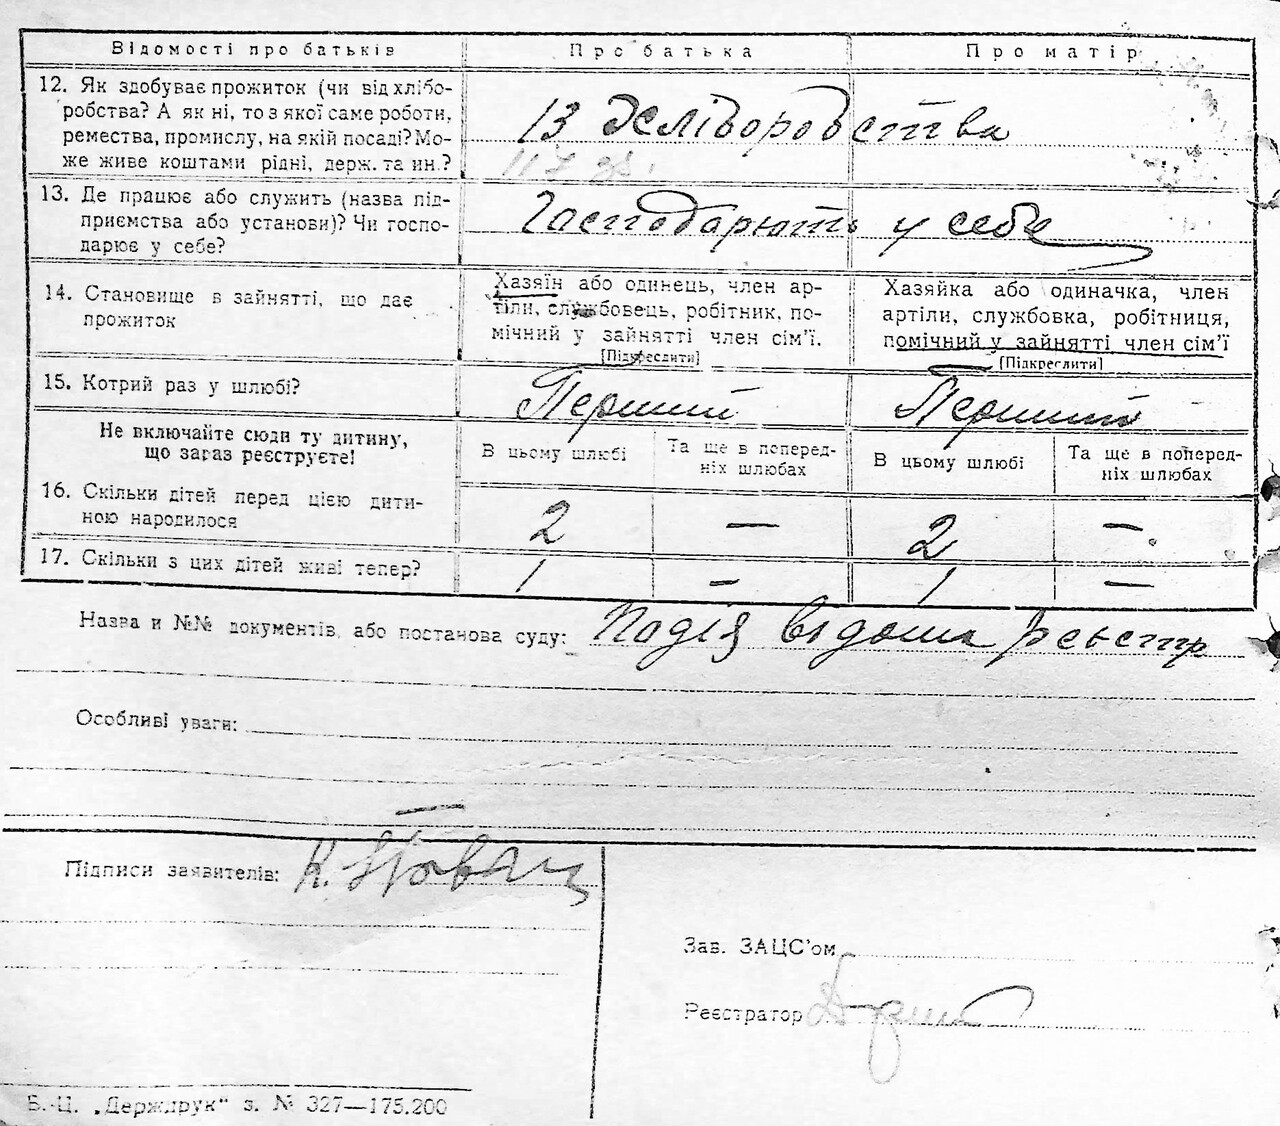 Відомості про батьків Про батька Про матір
12. Як здобуває прожиток (чи від хлібо-
робства? А як ні, то з якої саме роботи,
ремества, промислу, на якій посаді? Мо-
же живе коштами рідні, держ. та ин.?
Із Хліборобства
13. Де працює або служить (назва під-
приємства або установи)? Чи госпо-
дарює у себе?
Господарюють у себе
14. Становище в зайнятті, що дає
прожиток
Хазяїн або одинець, член ар-
тіли, службовець, робітник, по-
мічний у зайнятті член сім’ї.
[Підкреслити]
Хазяйка або одиначка, член
артіли, службовка, робітниця,
помічний у зайнятті член сім’ї
[Підкреслити]
15. Котрий раз у шлюбі? Перший Перший
Не включайте сюди ту дитину,
що зараз реєструєте!
В цьому шлюбі
Та ще в поперед-
ніх шлюбах
В цьому шлюбі
Та ще в поперед-
ніх шлюбах
16. Скільки дітей перед цією дити-
ною народилося
2 — 2 —
17. Скільки з цих дітей живі тепер? 1 – 1 —
Назва и №№ документів або постанова суду: Подія відома реєстр
Особливі уваги:
Підписи заявителів: К.
Зав. ЗАЦС’ом
Реєстратор
Б.-Ц. „Держдрук“ з. № 327—175.200